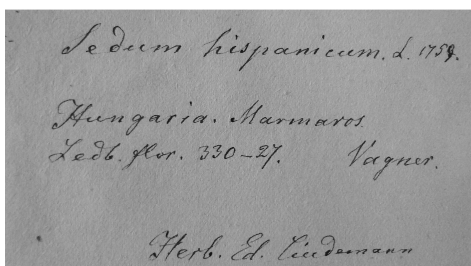 Sedum hispanicum. L. 1759.
Hungaria. Marmaros.
Ledb. flor. 330-27. Vagner.
Herb. Ed. Lindemann